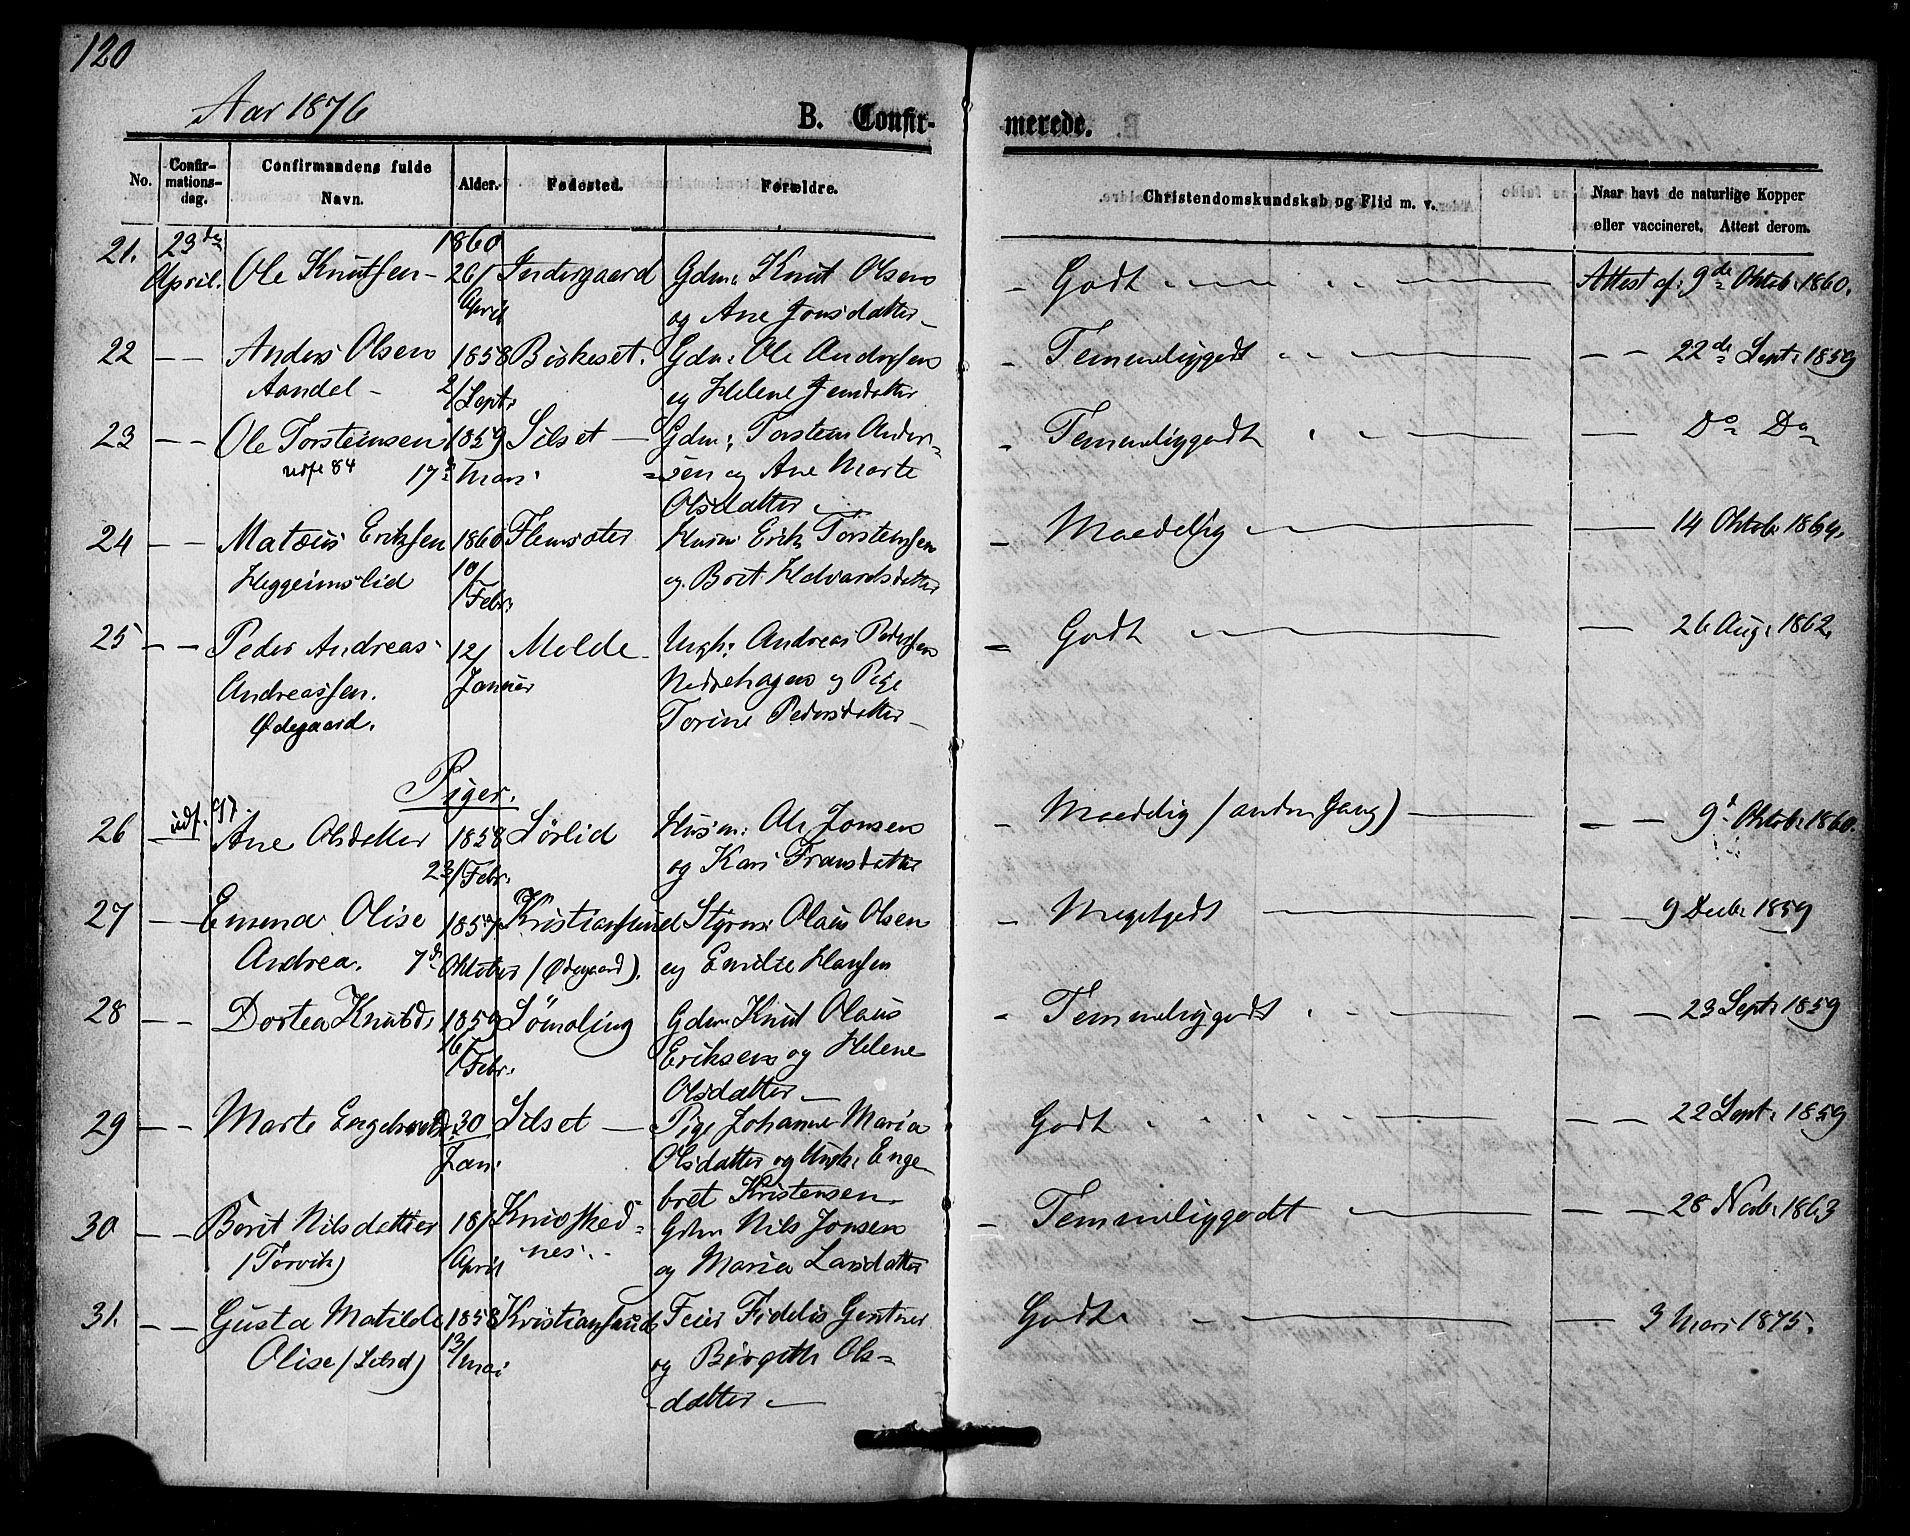 120
Aar 1876
B. Confirmerede.
No. Confirmationsdag. Confirmandens fulde Navn. Alder. Fødested. Forældre. Christendomskundskab og Flid m. v. Naar havt de naturlige Kopper eller vaccineret. Attest derom.
21. 23de 1860
April. Ole Knutsen - 26/ Indergaard Gdm: Knut Olsen - Godt Attest af: 9de Oktob: 1860.
April og Ane Jonsdatter -
22 - - Anders Olsen 1858 Gdm: Ole Andersen - Temmeliggodt - - 22de Sept: 1859
Aandal - 2/Sept: og Helene Jensdatter
23 - - Ole Torsteinsen 1859 Silset - Gdm: Torstein Ander- - Temmeliggodt - Do Do
udfl 84 17de Mars: =sen og Ane Marte
Olsdatter -
24 - - Matæus Eriksen 1860 Flemsæter Husm: Erik Torsteinsen - Maadelig - 14 Oktob: 1864.
Heggeimslid 10/Febr: og Brit Hdvardsdatter
25 - - Peder Andreas 12/ Molde - Ungk: Andreas Pedersen - Godt - 26 Aug: 1862.
Andreassen. Januar Nedrehagen og Pige
Ødegaard. Torine Pedersdatter -
Piger.
udf. 97
26 Ane Olsdatter 1858 Sørlid Husm: Ole Jonsen - Maadelig (anden Gang) - - 9d Oktob: 1860.
23/Febr: og Kari Fransdatter
27 - - Emma Olise 1857 Kristiansund Styrm: Olaus Olsen - Megetgodt - - 9 Decb: 1859
Andrea. 7de Oktober (Ødegaard). og Emilie Hansen
28 - - Dortea Knutsd: 1859 Gdm: Knut Olaus - Temmeliggodt - - 23 Sept: 1859
16/Febr: Eriksen og Helene
Olsdatter -
29 - - Marte Engebretsd: 30 Silset - Pige Johanne Maria Godt - - 22 Sept: 1859
Jan: Olsdatter og Ungk: Enge
bret Kristensen -
30 - - Borit Nilsdatter 18/ Gdm Nils Jonsen - Temmeliggodt - - 28 Novb: 1863
(Torvik) April nes og Maria Larsdatter
31. - - Gusta Matilde 1858 Kristiansund Feier Fidelis Gentner Godt - - 3 Mars 1875.
Olise (Silset) 13/mai og Birgith Ols=
datter -